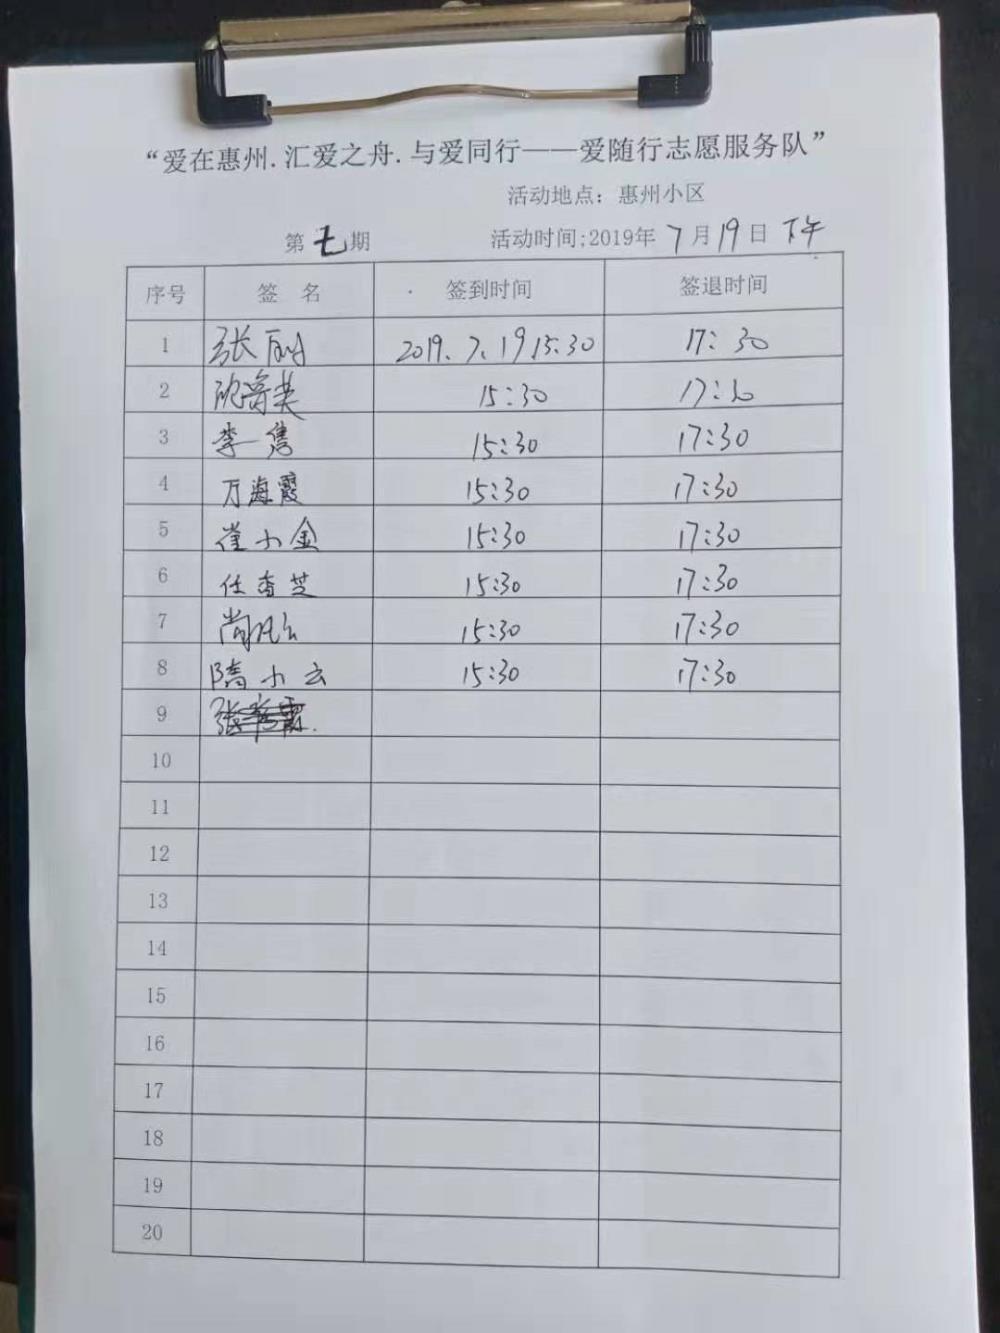 “爱在惠州.汇爱之舟.与爱同行——爱随行志愿服务队”
活动地点：惠州小区
第七期 活动时间;2019年7月19日 下午
序号 签 名 签到时间 签退时间
1 张 2019.7.19 15:30 17:30
2 英 15:30 17:30
3 李隽 15:30 17:30
4 万海霞 15:30 17:30
5 崔小金 15:30 17:30
6 任香芝 15:30 17:30
7 尚 15:30 17:30
8 隋小云 15:30 17:30
9 张
10
11
12
13
14
15
16
17
18
19
20